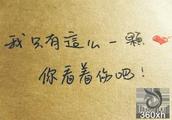 我只有這么一顆
你看着伤吧！
360xh